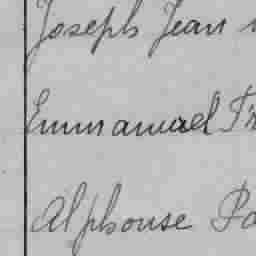 Joseph Jean
Emmanuel Fr
Alphonse Pa